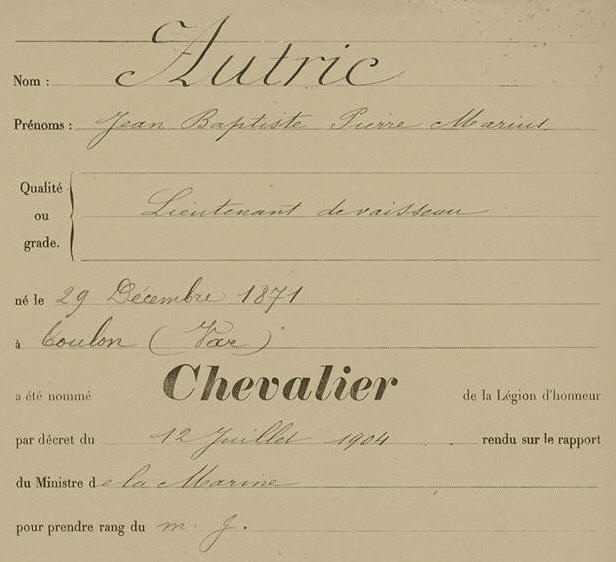 Nom : Autric
Prénoms : Jean Baptiste Pierre Marius
Qualité
ou
grade.
Lieutenant de vaisseau
né le 29 Décembre 1871
à Toulon (Var)
a été nommé Chevalier de la Légion d'honneur
par décret du 12 Juillet 1904 rendu sur le rapport
du Ministre de la Marine
pour prendre rang du m. J.